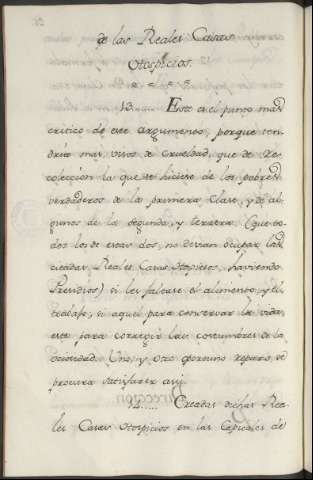 de las Reales Casas
Ospicios.
13. Este es el punto mas
critico de este argumento, porque ten-
dria mas visos de crueldad, que de Re-
coleccion la que se hiciese de los pobres
verdaderos de la primera clase, y de al-
gunos de la segunda, y tercera (que to-
dos los de estas dos, no devian ocupar las
citadas Reales Casas Ospicios, haviendo
Presidios) si les faltase el alimento, y el
trabajo, si aquel para conservar la vida,
este para corregir las costumbres de la
ociosidad. Uno, y otro oportuno reparo, se
procura satisfazer asi.
14..... Creadas dichas Rea-
les Casas Ospicios en las Capitales de